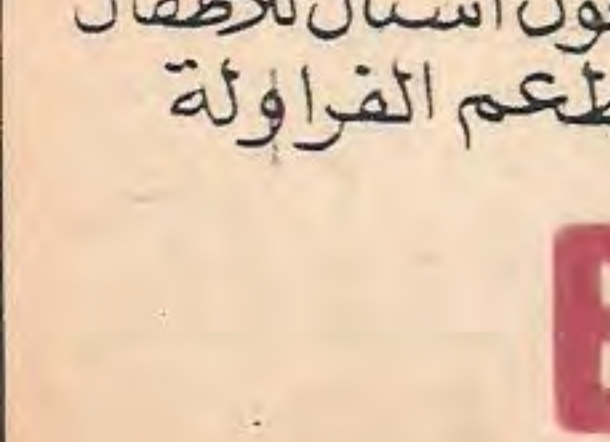 ون أسنان للأطفال
طعم الفراولة